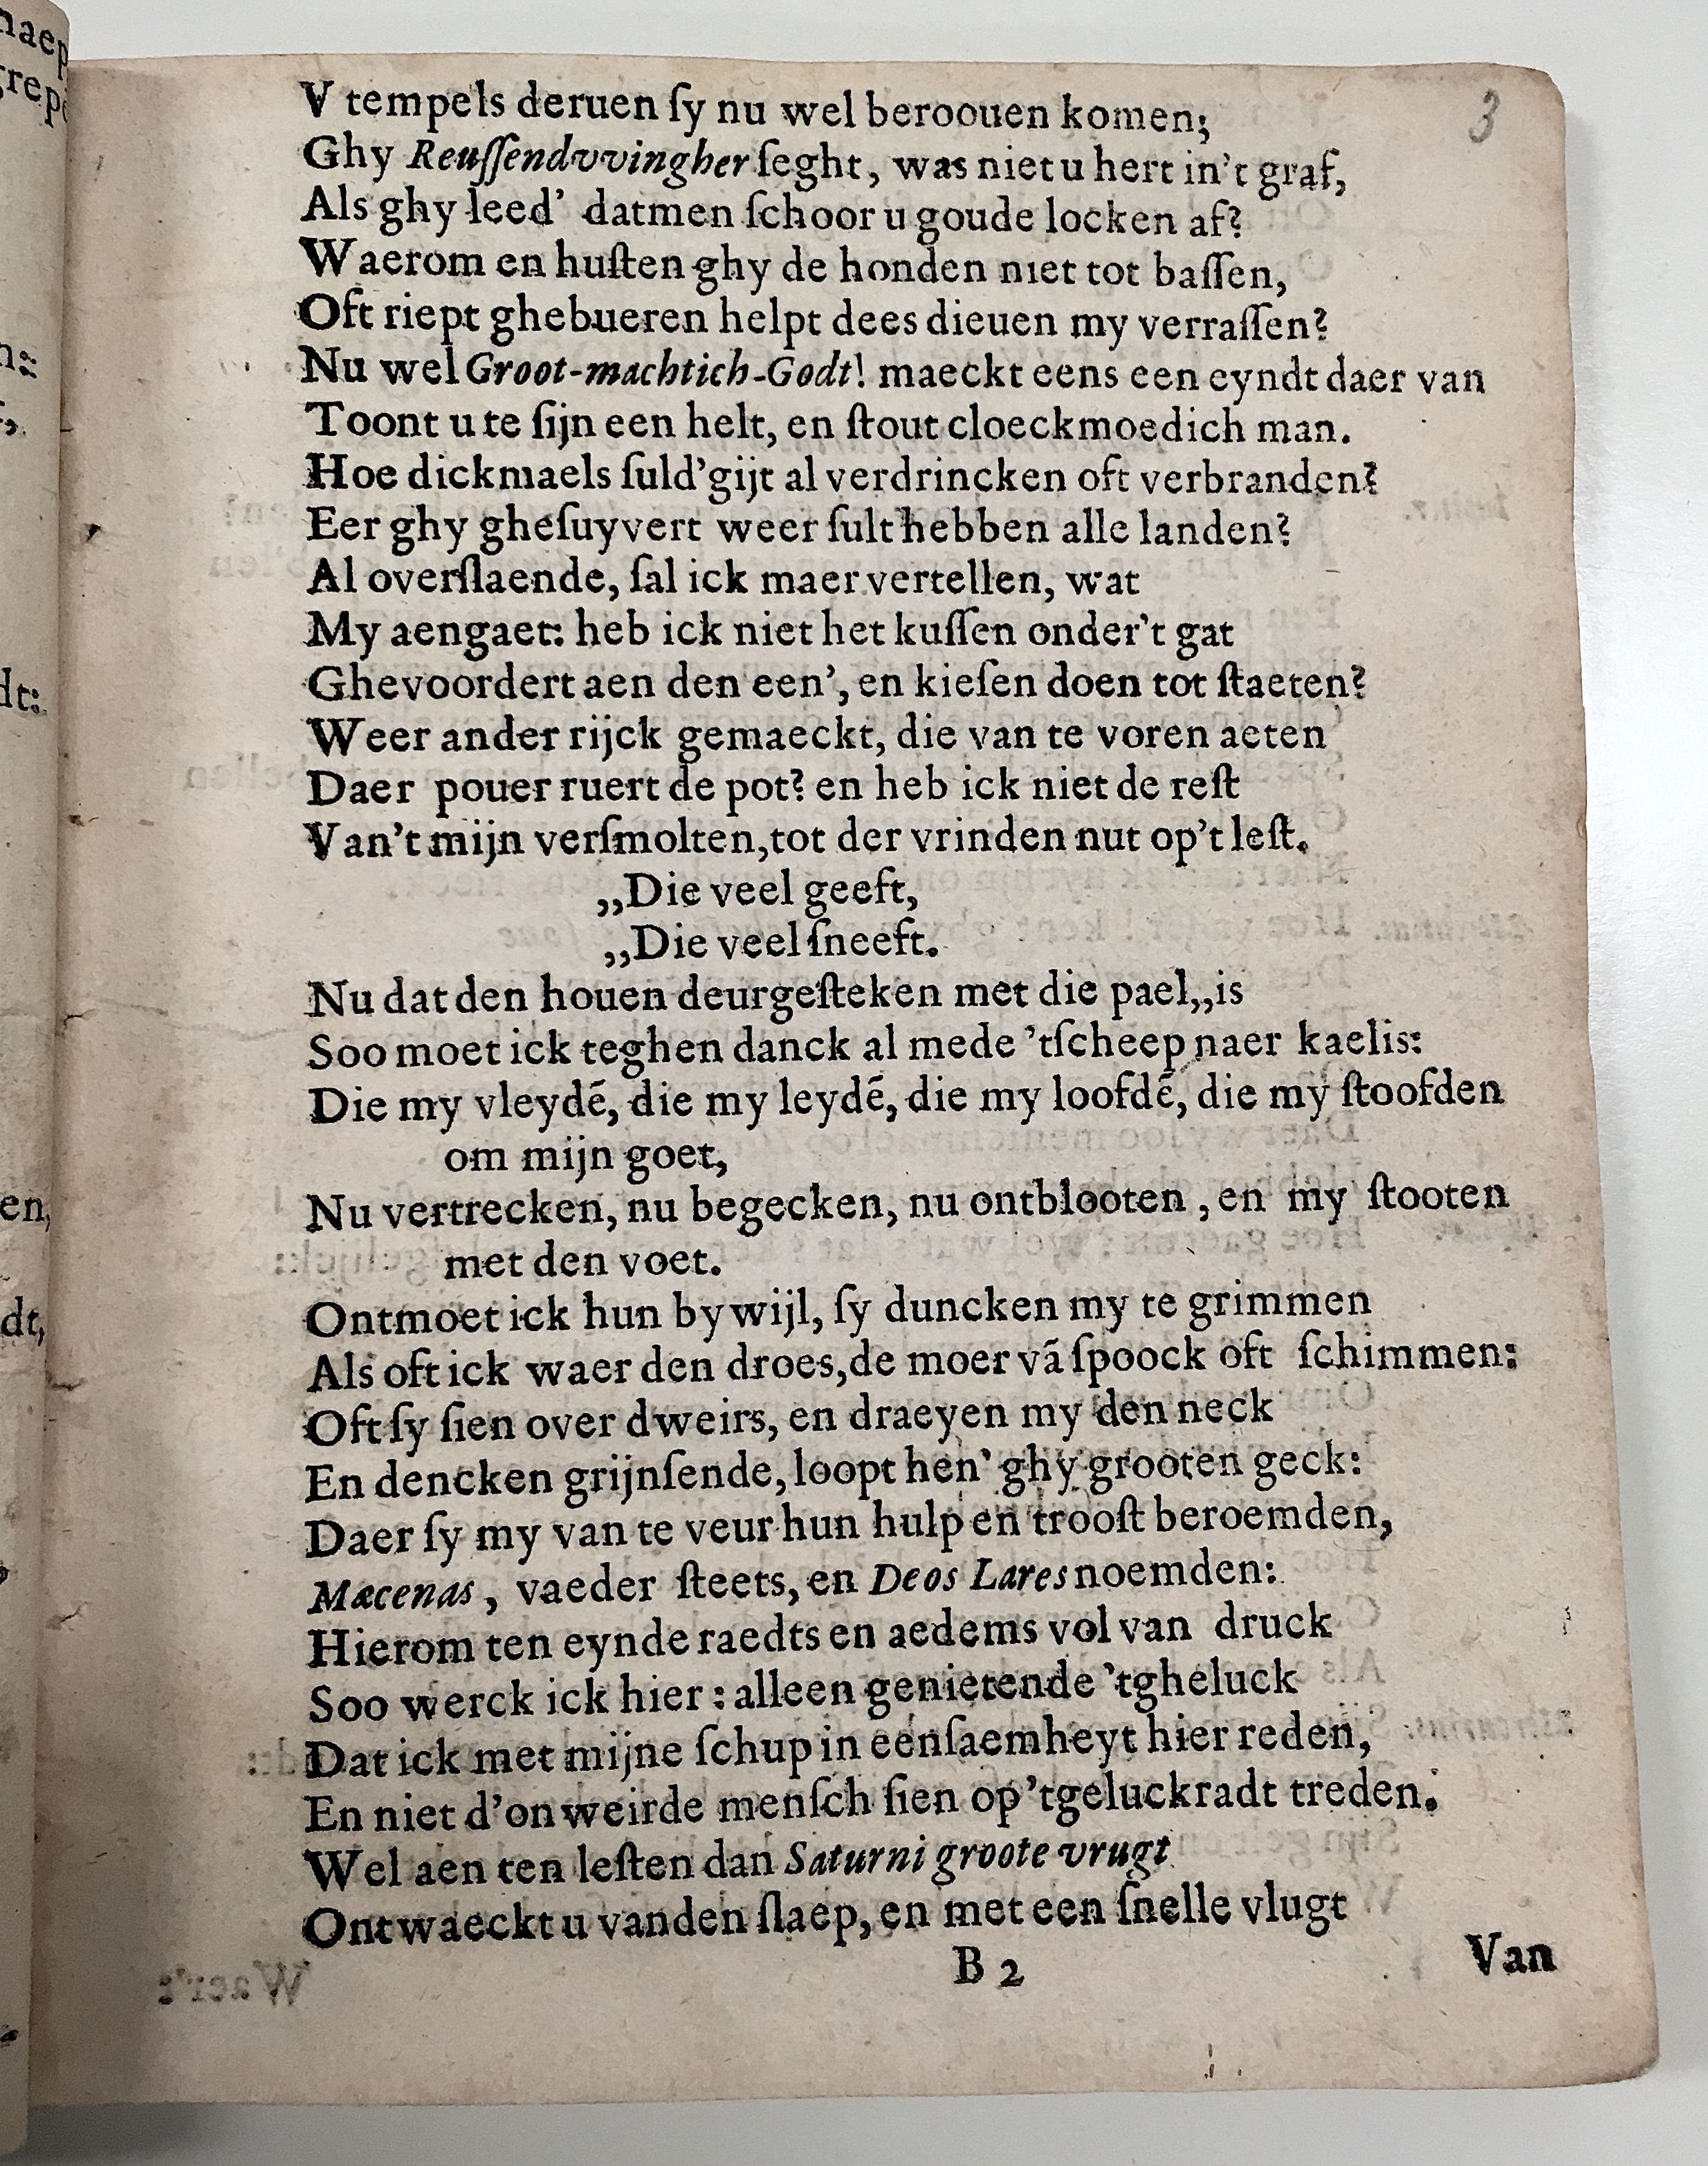 3
V tempels deruen ſy nu wel beroouen komen;
Ghy Reuſſendvvingher ſeght, was niet u hert in't graf,
Als ghy leed' datmen ſchoor u goude locken af?
Waerom en huſten ghy de honden niet tot baſſen,
Oft riept ghebueren helpt dees dieuen my verraſſen?
Nu wel Groot-machtich-Godt! maeckt eens een eyndt daer van
Toont u te ſijn een helt, en ſtout cloeckmoedich man.
Hoe dickmaels ſuld'gijt al verdrincken oft verbranden?
Eer ghy gheſuyvert weer ſult hebben alle landen?
Al overſlaende, ſal ick maer vertellen, wat
My aengaet: heb ick niet het kuſſen onder't gat
Ghevoordert aen den een', en kieſen doen tot ſtaeten?
Weer ander rijck gemaeckt, die van te voren aeten
Daer pouer ruert de pot? en heb ick niet de reſt
Van't mijn verſmolten, tot der vrinden nut op't leſt.
„Die veel geeft,
„Die veel ſneeft.
Nu dat den houen deurgeſteken met die pael„is
Soo moet ick teghen danck al mede 'tſcheep naer kaelis:
Die my vleydẽ, die my leydẽ, die my loofdẽ, die my ſtoofden
om mijn goet,
Nu vertrecken, nu begecken, nu ontblooten, en my ſtooten
met den voet.
Ontmoet ick hun by wijl, ſy duncken my te grimmen
Als oft ick waer den droes, de moer vã ſpoock oft ſchimmen:
Oft ſy ſien over dweirs, en draeyen my den neck
En dencken grijnſende, loopt hen' ghy grooten geck:
Daer ſy my van te veur hun hulp en trooſt beroemden,
Mæcenas, vaeder ſteets, en Deos Lares noemden:
Hierom ten eynde raedts en aedems vol van druck
Soo werck ick hier: alleen genietende 'tgheluck
Dat ick met mijne ſchup in eenſaemheyt hier reden,
En niet d'onweirde menſch ſien op 'tgeluckradt treden.
Wel aen ten leſten dan Saturni groote vrugt
Ontwaeckt u vanden ſlaep, en met een ſnelle vlugt
B 2
Van